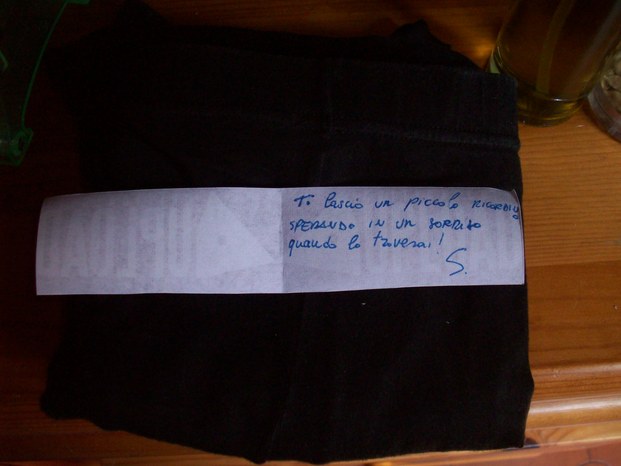 Ti lascio un piccolo ricordo
SPERANDO IN UN SORRISO
quando lo troverai!
S.